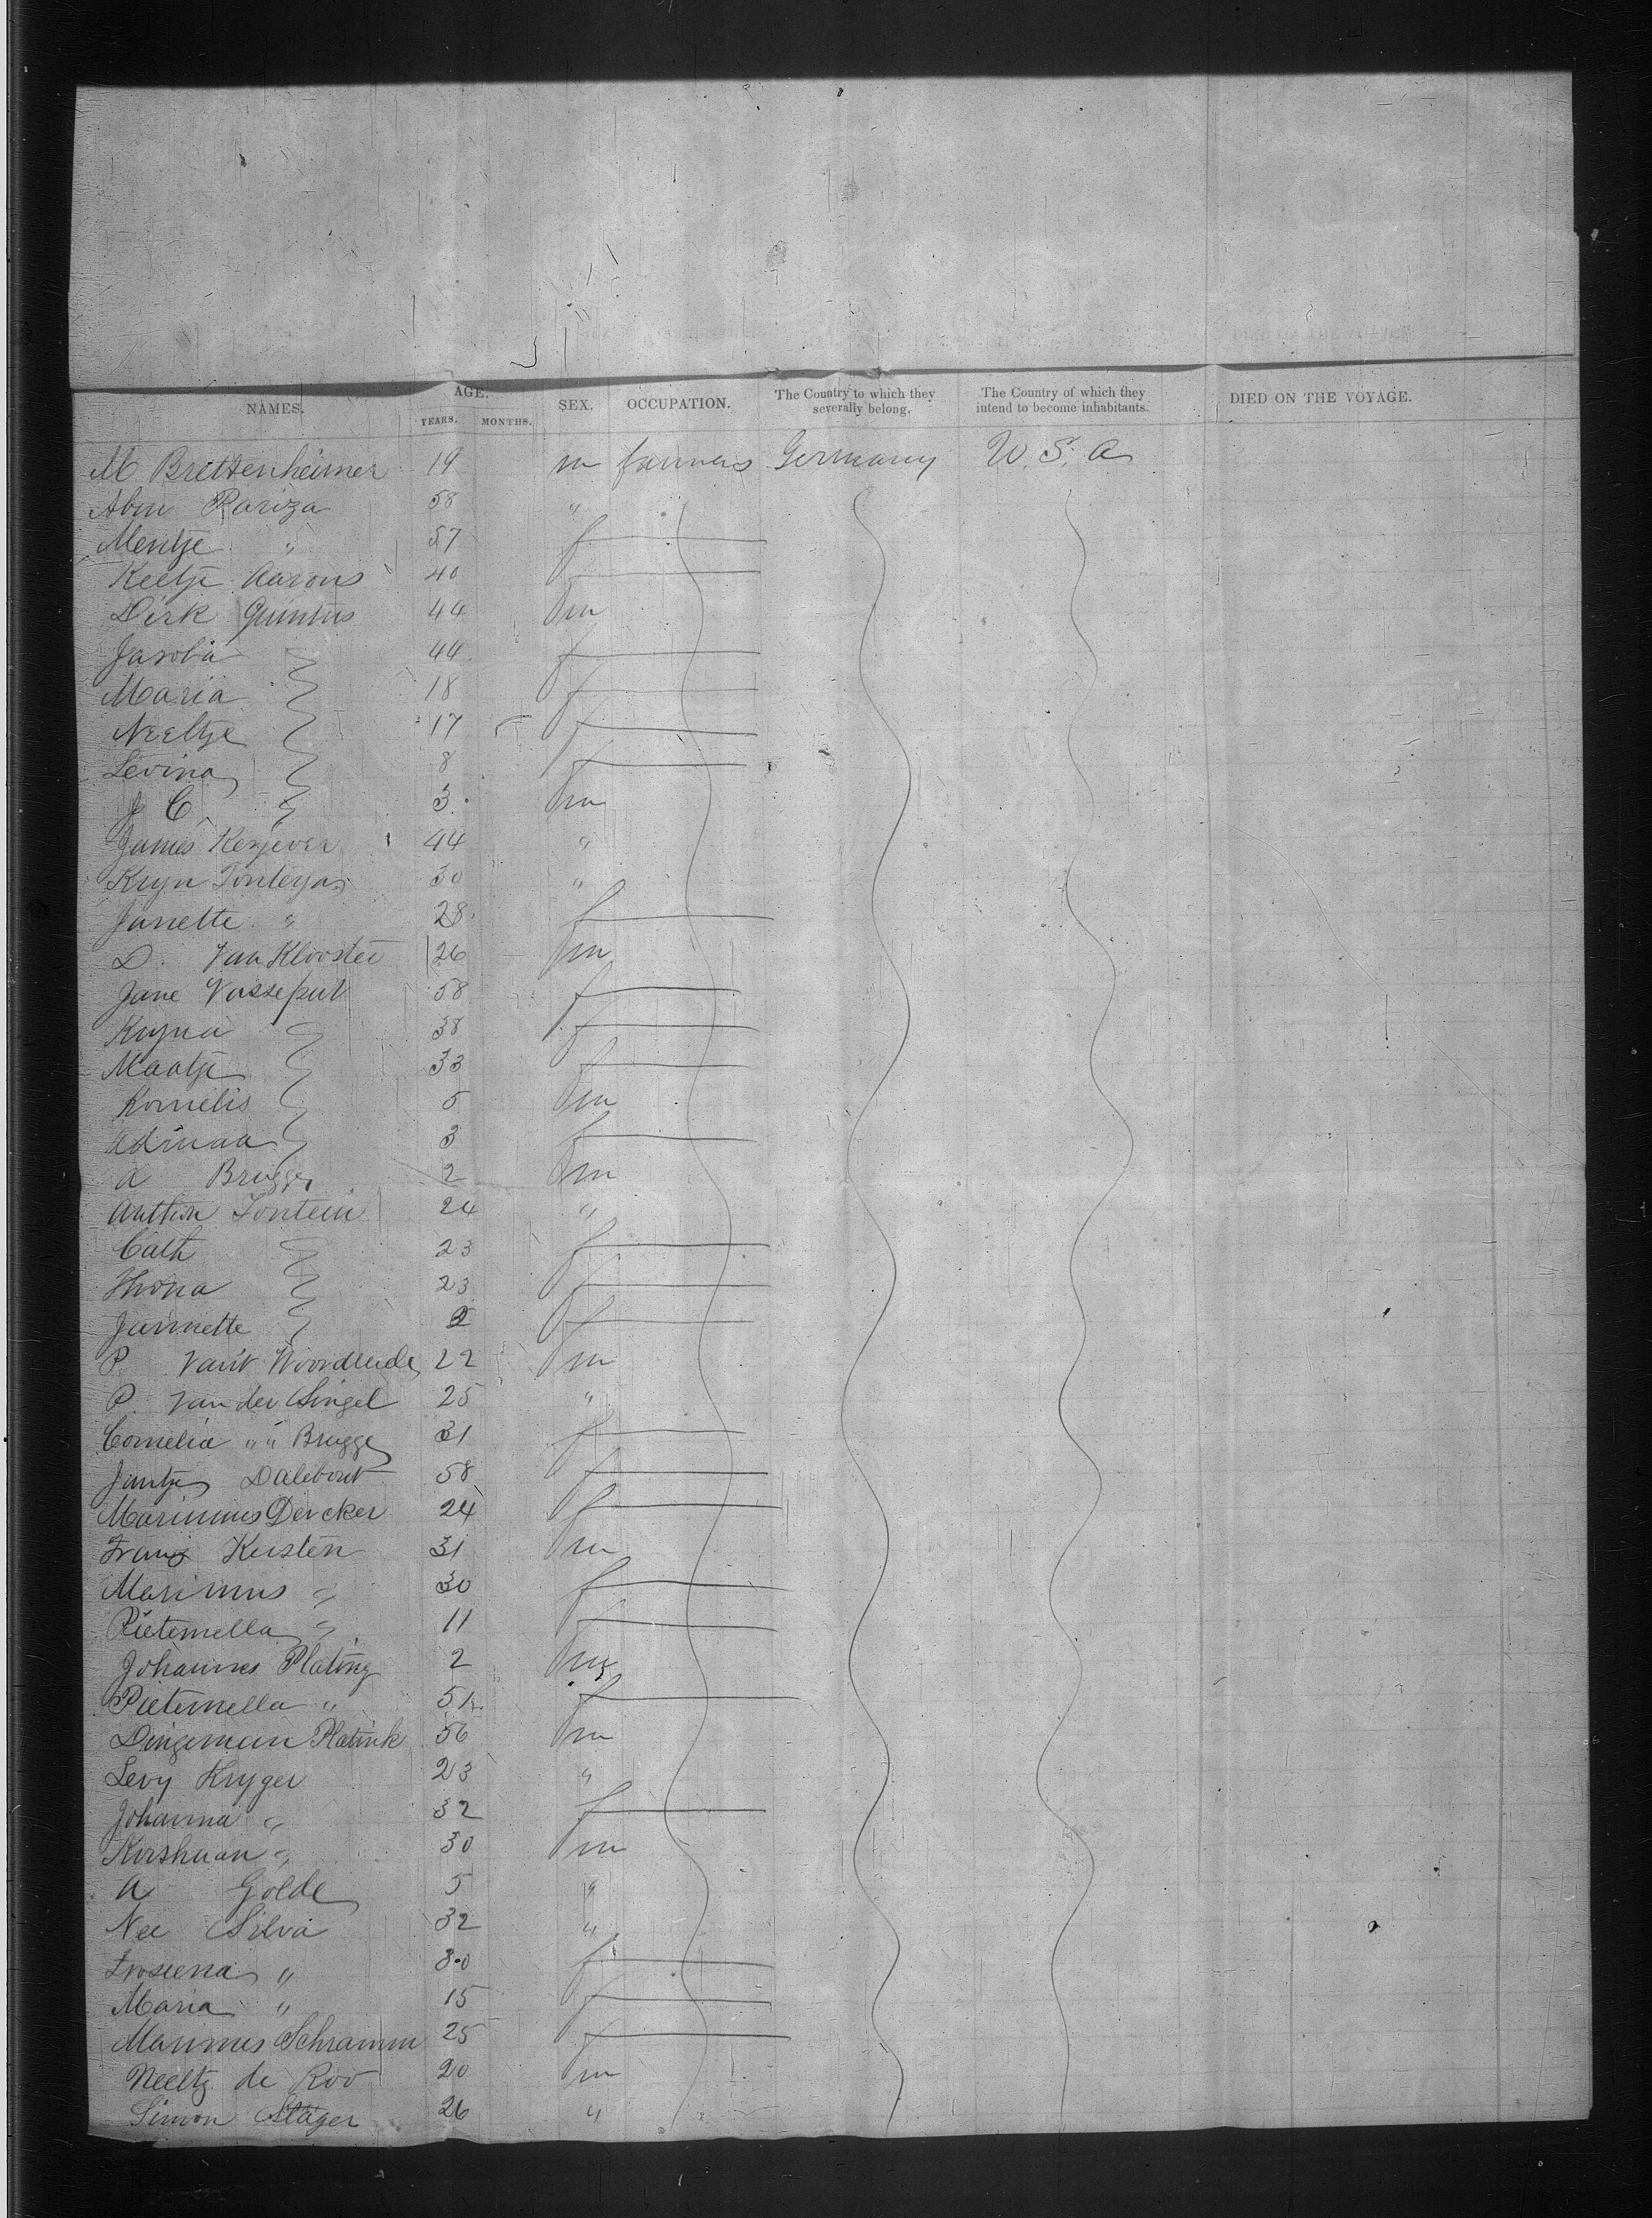 NAMES. AGE. YEARS. MONTHS. SEX. OCCUPATION. The Country to which they severally belong. The Country of which they intend to become inhabitants. DIED ON THE VOYAGE.
M Brettenheimer 19 m farmers Germany U. S. A
Abm Pariza 58 "
Mentje " 57 f
Keetje Aarons 40 f
Dirk Quintus 44 m
Jacoba 44 f
Maria 18 f
Neeltje 17 f
Levina 8 f
J C 3 m
James 44 "
Kryn 30 "
Janette " 28 f
D. Van Klooster 26 m
Jane Vosseput 58 f
Kryna 38 f
Maatje 33 f
Kornelis 5 m
Adinaa 3 f
A Brugge 2 m
Anthon Fontein 24 "
Cath 23 f
Thona 23 f
Jannette 2 f
P Van't 22 m
P. Van der Singel 25 "
Cornelia " " Brugge 31 f
Jantje Dalebout 58 f
Marinus Dercker 24 f
Franz Kersten 31 m
Marinus " 30 f
Pieternella " 11 f
Johannes Plating 2 m
Pieternella " 51 f
Dingeman Platink 56 m
Levy Kryger 23 "
Johanna " 32 f
" 30 m
A Golde 5 "
Nee Silva 32 "
" 30 f
Maria " 15 f
Marinus Schramm 25 f
Neeltj de Roo 20 m
Simon Stäger 26 "